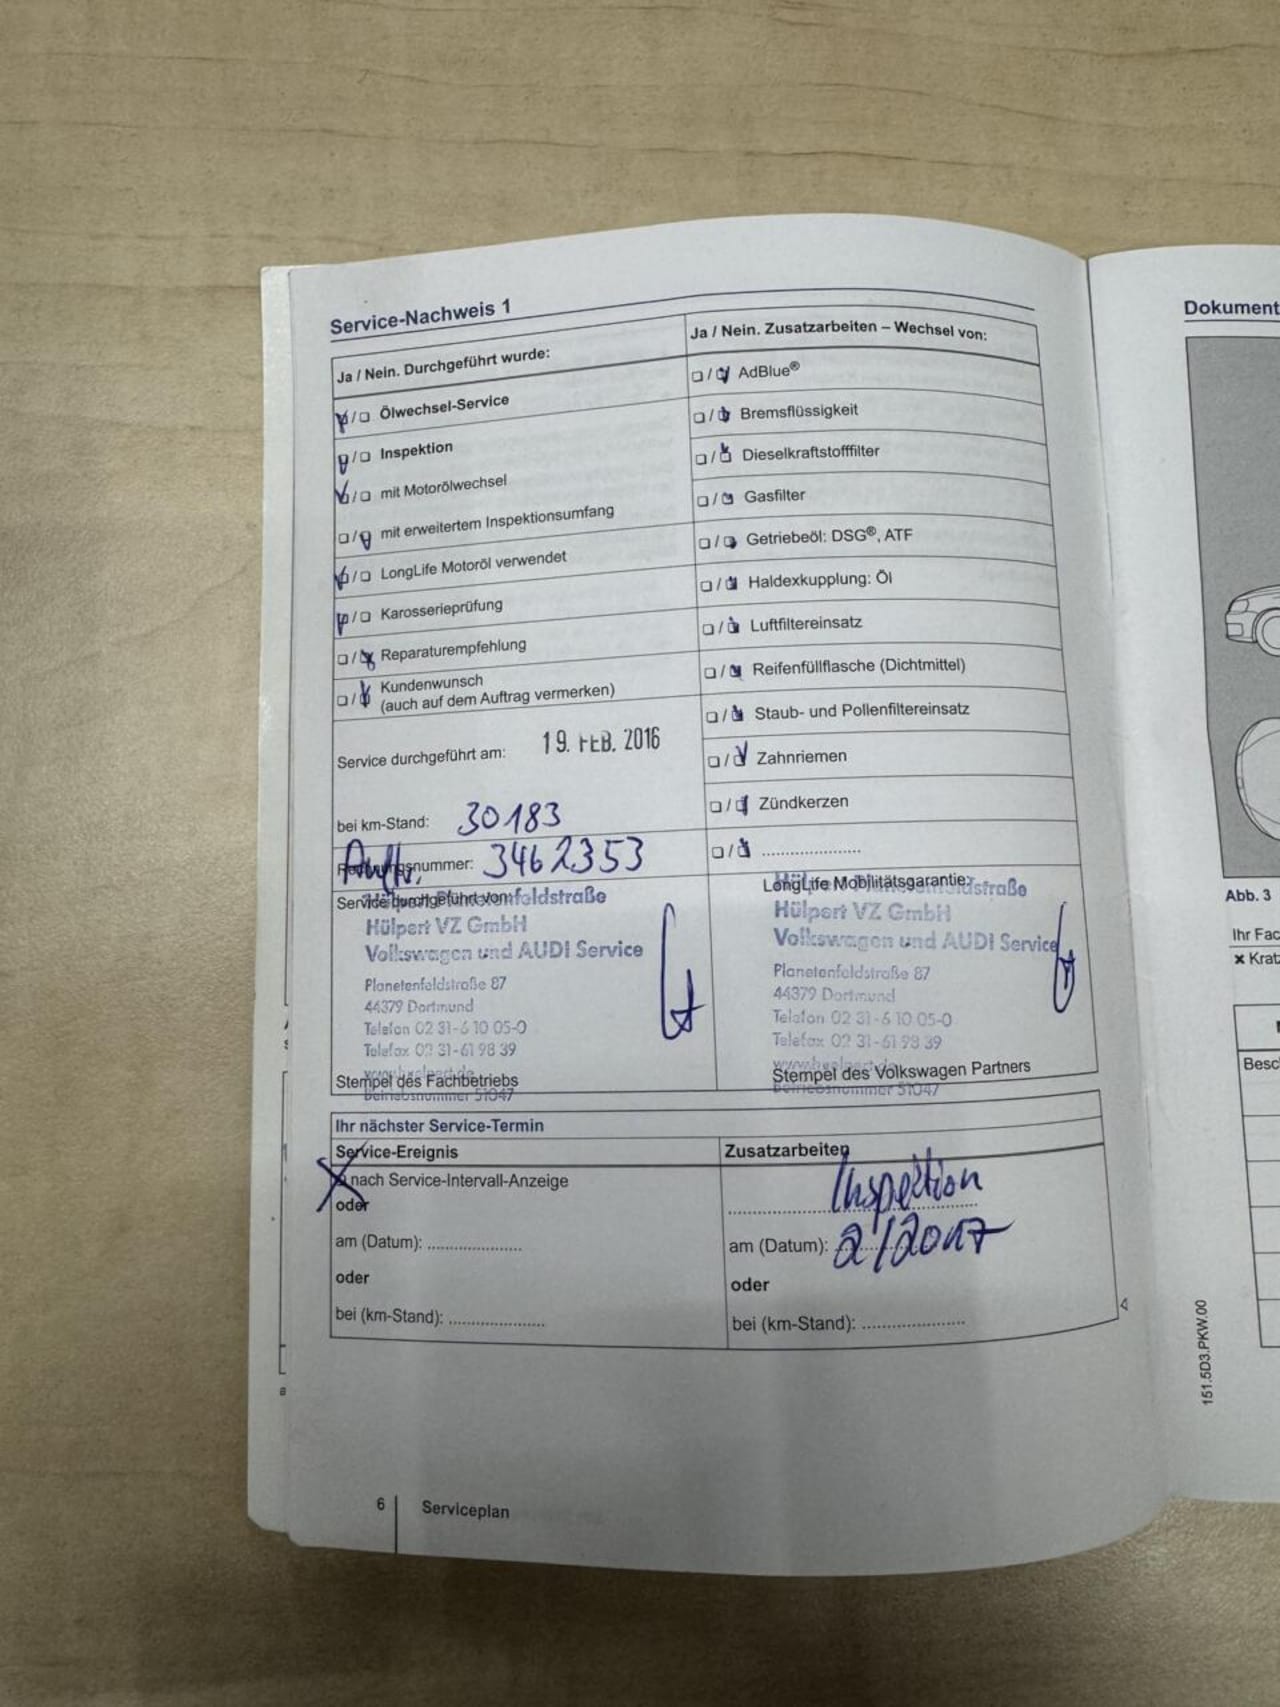 Service-Nachweis 1
Ja / Nein. Durchgeführt wurde:
Ölwechsel-Service
Inspektion
mit Motorölwechsel
mit erweitertem Inspektionsumfang
LongLife Motoröl verwendet
Karosserieprüfung
Reparaturempfehlung
Kundenwunsch
(auch auf dem Auftrag vermerken)
Service durchgeführt am: 19. FEB. 2016
bei km-Stand: 30183
Auftr. Rechnungsnummer: 3462353
Service durchgeführt von:
Hülpert VZ GmbH
Volkswagen und AUDI Service
Planetenfeldstraße 87
44379 Dortmund
Telefon 02 31-6 10 05-0
Telefax 02 31-61 98 39
www.huelpert.de
Stempel des Fachbetriebs
Betriebsnummer 51047
Ja / Nein. Zusatzarbeiten – Wechsel von:
AdBlue®
Bremsflüssigkeit
Dieselkraftstofffilter
Gasfilter
Getriebeöl: DSG®, ATF
Haldexkupplung: Öl
Luftfiltereinsatz
Reifenfüllflasche (Dichtmittel)
Staub- und Pollenfiltereinsatz
Zahnriemen
Zündkerzen
LongLife Mobilitätsgarantie:
Hülpert VZ GmbH
Volkswagen und AUDI Service
Planetenfeldstraße 87
44379 Dortmund
Telefon 02 31-6 10 05-0
Telefax 02 31-61 98 39
www.huelpert.de
Stempel des Volkswagen Partners
Betriebsnummer 51047
Ihr nächster Service-Termin
Service-Ereignis
nach Service-Intervall-Anzeige
oder
am (Datum):
oder
bei (km-Stand):
Zusatzarbeiten
Inspektion
am (Datum): 2/2017
oder
bei (km-Stand):
6
Serviceplan
Dokument
Abb. 3
Ihr Fac
× Krat
Besc
151.5D3.PKW.00